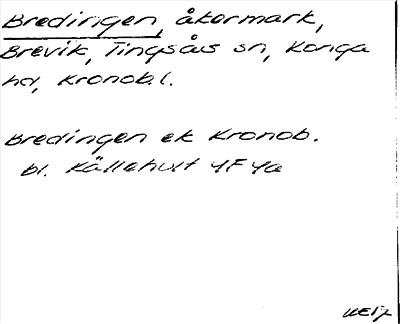 Bredingen, åkermark,
Brevik, Tingsås sn, Konga
hd, Kronob.l.
Bredingen ek Kronob.
bl. Källehult 4F 4a